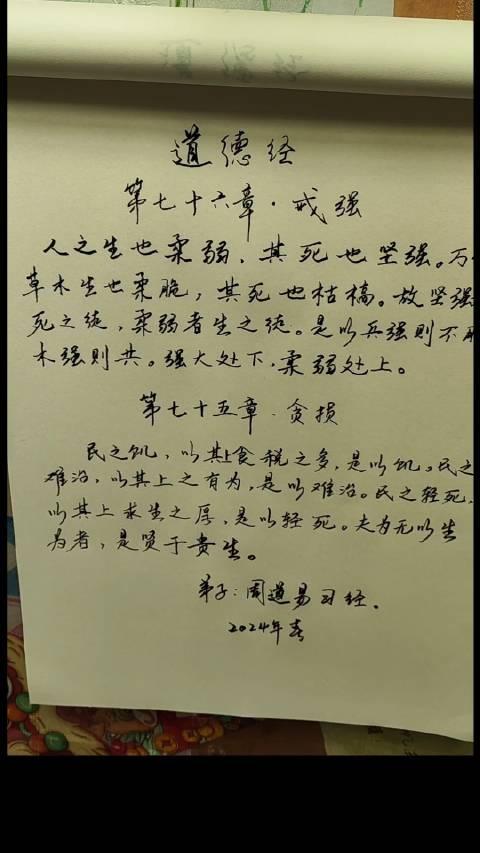 道德经
第七十六章·戒强
人之生也柔弱，其死也坚强。万
草木生也柔脆，其死也枯槁。故坚强
死之徒，柔弱者生之徒。是以兵强则不
木强则共。强大处下，柔弱处上。
第七十五章·贪损
民之饥，以其上食税之多，是以饥。民之
难治，以其上之有为，是以难治。民之轻死，
以其上求生之厚，是以轻死。夫为无以生
为者，是贤于贵生。
弟子：周道易习经.
2024年春